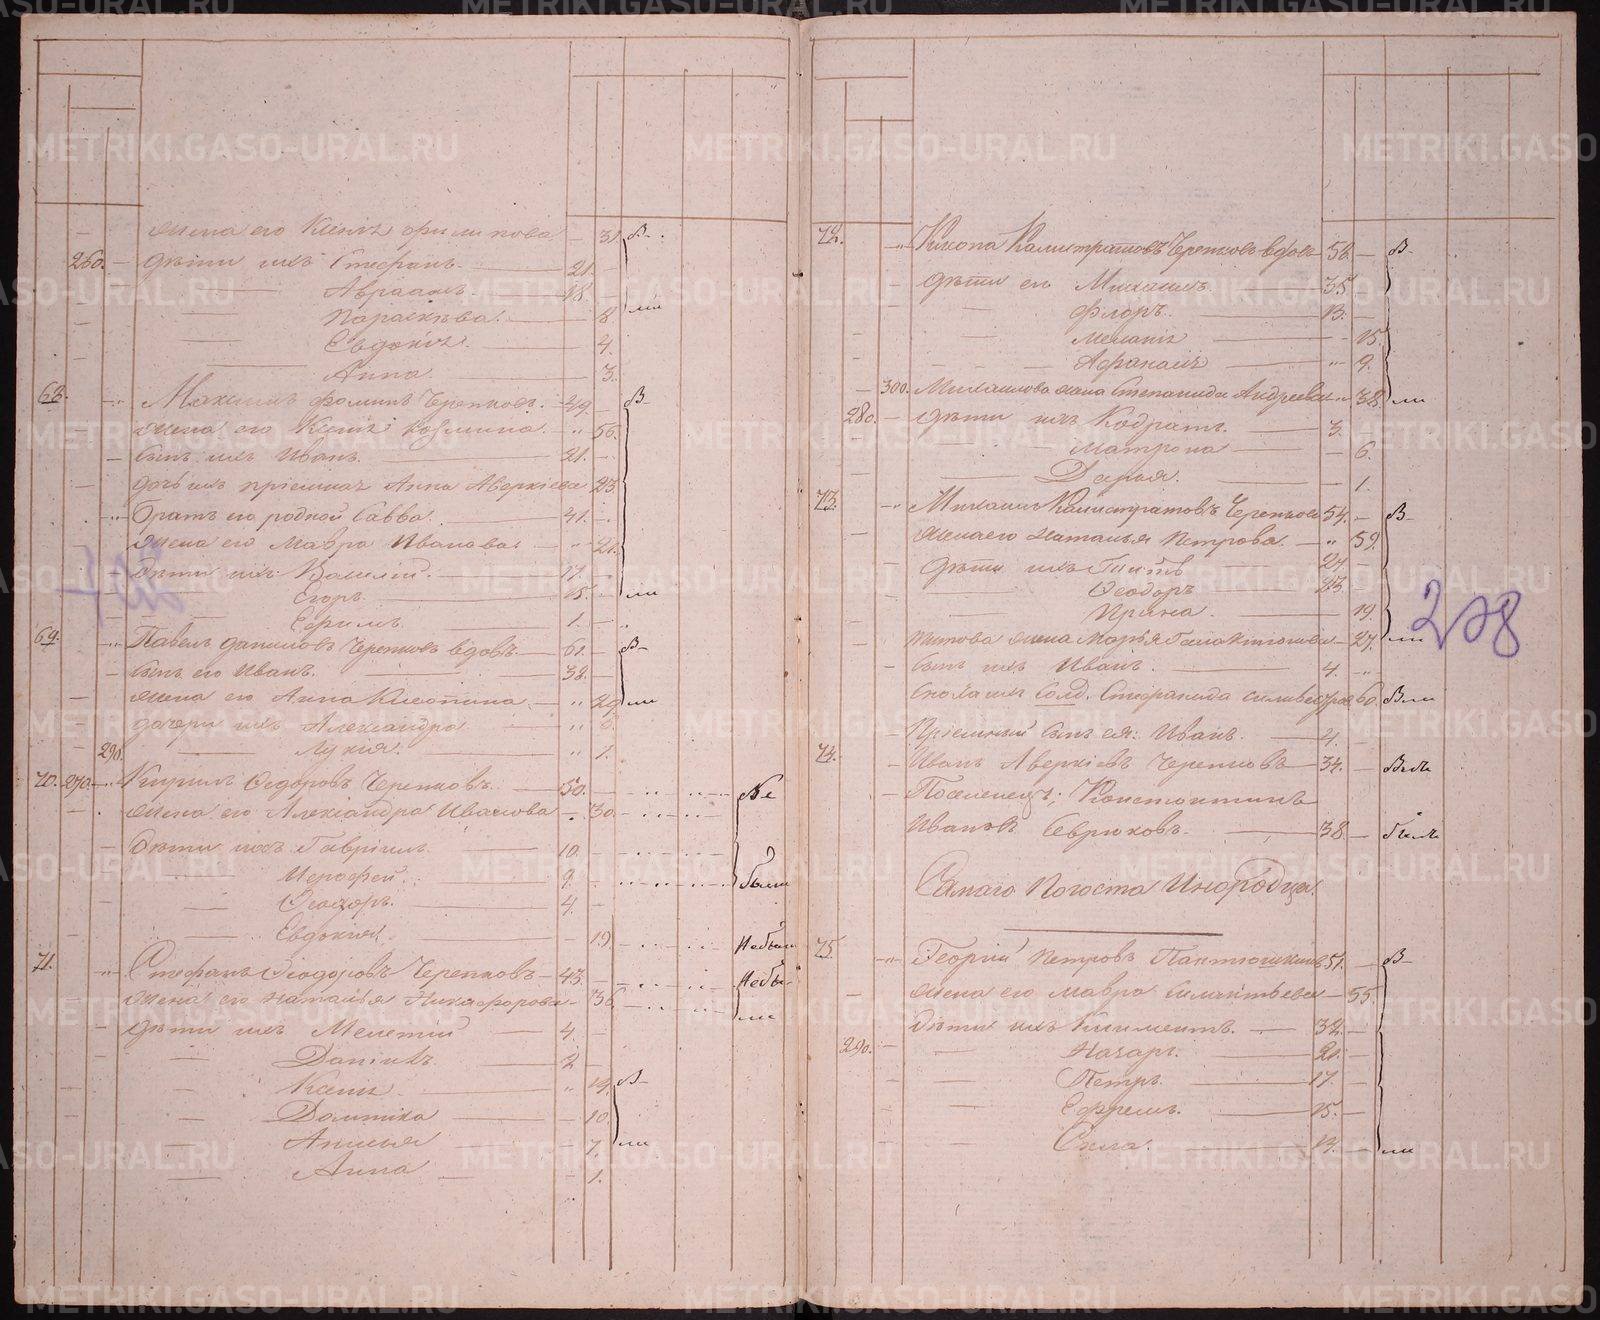 жена его Ксенія Филипова — 31. В-
260. — Дѣти ихъ Стефанъ — 21.
Авраамъ — 18.
Параскѣва — 8 ли
Евдокія — 4.
Анна — 3.
68. Максимъ Фоминъ Черепковъ — 49 — В-
жена его Ксенія Козмина — 56.
сынъ ихъ Иванъ — 21.
дочь ихъ пріемная Анна Аверкіева 23.
братъ его родной Савва — 41.
жена его Мавра Иванова — 21.
дѣти ихъ Василій — 17.
Егоръ — 15. ли
Ефимъ — 1.
69. Павелъ Даниловъ Черепковъ вдовъ — 61. В-
сынъ его Иванъ — 38.
жена его Анна — 29 ли
дочери ихъ Александра
290. Лукія — 1.
70. 270. Кирилъ Ѳедоровъ Черепковъ — 50. Не
жена его Александра Иванова — 30.
Дѣти ихъ Гавріилъ — 10.
Іерофей — 9. были
Ѳеодоръ — 4.
Евдокія — 19. Небыли
71. Стефанъ Ѳеодоровъ Черепковъ — 43. Небы-
жена его Наталья Никифорова — 36. ли
Дѣти ихъ Мелетій — 4.
Даніилъ — 2
Ксенія — 14. В-
Домника — 10.
Анисья — 7. ли
Анна — 1.
72. Никона Калистратовъ Черепковъ вдовъ 56. В
Дѣти его Михаилъ — 35.
Флоръ — 13.
Меланія — 15.
Афанасія — 9.
300. Михаилова жена Степанида Андреева 38. ли
280. Дѣти ихъ Кодратъ — 3.
Матрона — 6.
Дарья — 1.
73. Михаилъ Калистратовъ Черепковъ 54. В-
жена его Наталья Петрова — 59.
Дѣти ихъ Титъ 24
Ѳеодоръ 23.
Ирина — 19.
Титова жена Марья Галактіонова — 27. ли
сынъ ихъ Иванъ — 4.
Сноха ихъ Солд. Стефанида Силивестрова 60. Вли
Пріемный сынъ ея: Иванъ — 4.
74. Иванъ Аверкіевъ Черепковъ — 34. Былъ
Поселенецъ; Константинъ
Ивановъ Севрюковъ — 38. былъ
Самаго Погоста Инородцы.
75. Георгій Петровъ Пантюшкинъ 51. В-
жена его Мавра Силантьева — 55.
Дѣти ихъ Климентъ — 32.
290. Назаръ — 21.
Петръ — 17.
Ефремъ — 15.
Сила — 13. ли